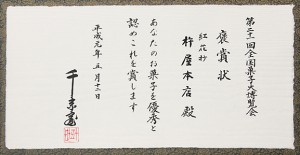 第二十一回全国菓子大博覧会
褒賞状
紅花抄
杵屋本店 殿
あなたのお菓子を優秀と
認めこれを賞します
平成元年五月十二日
千宗室